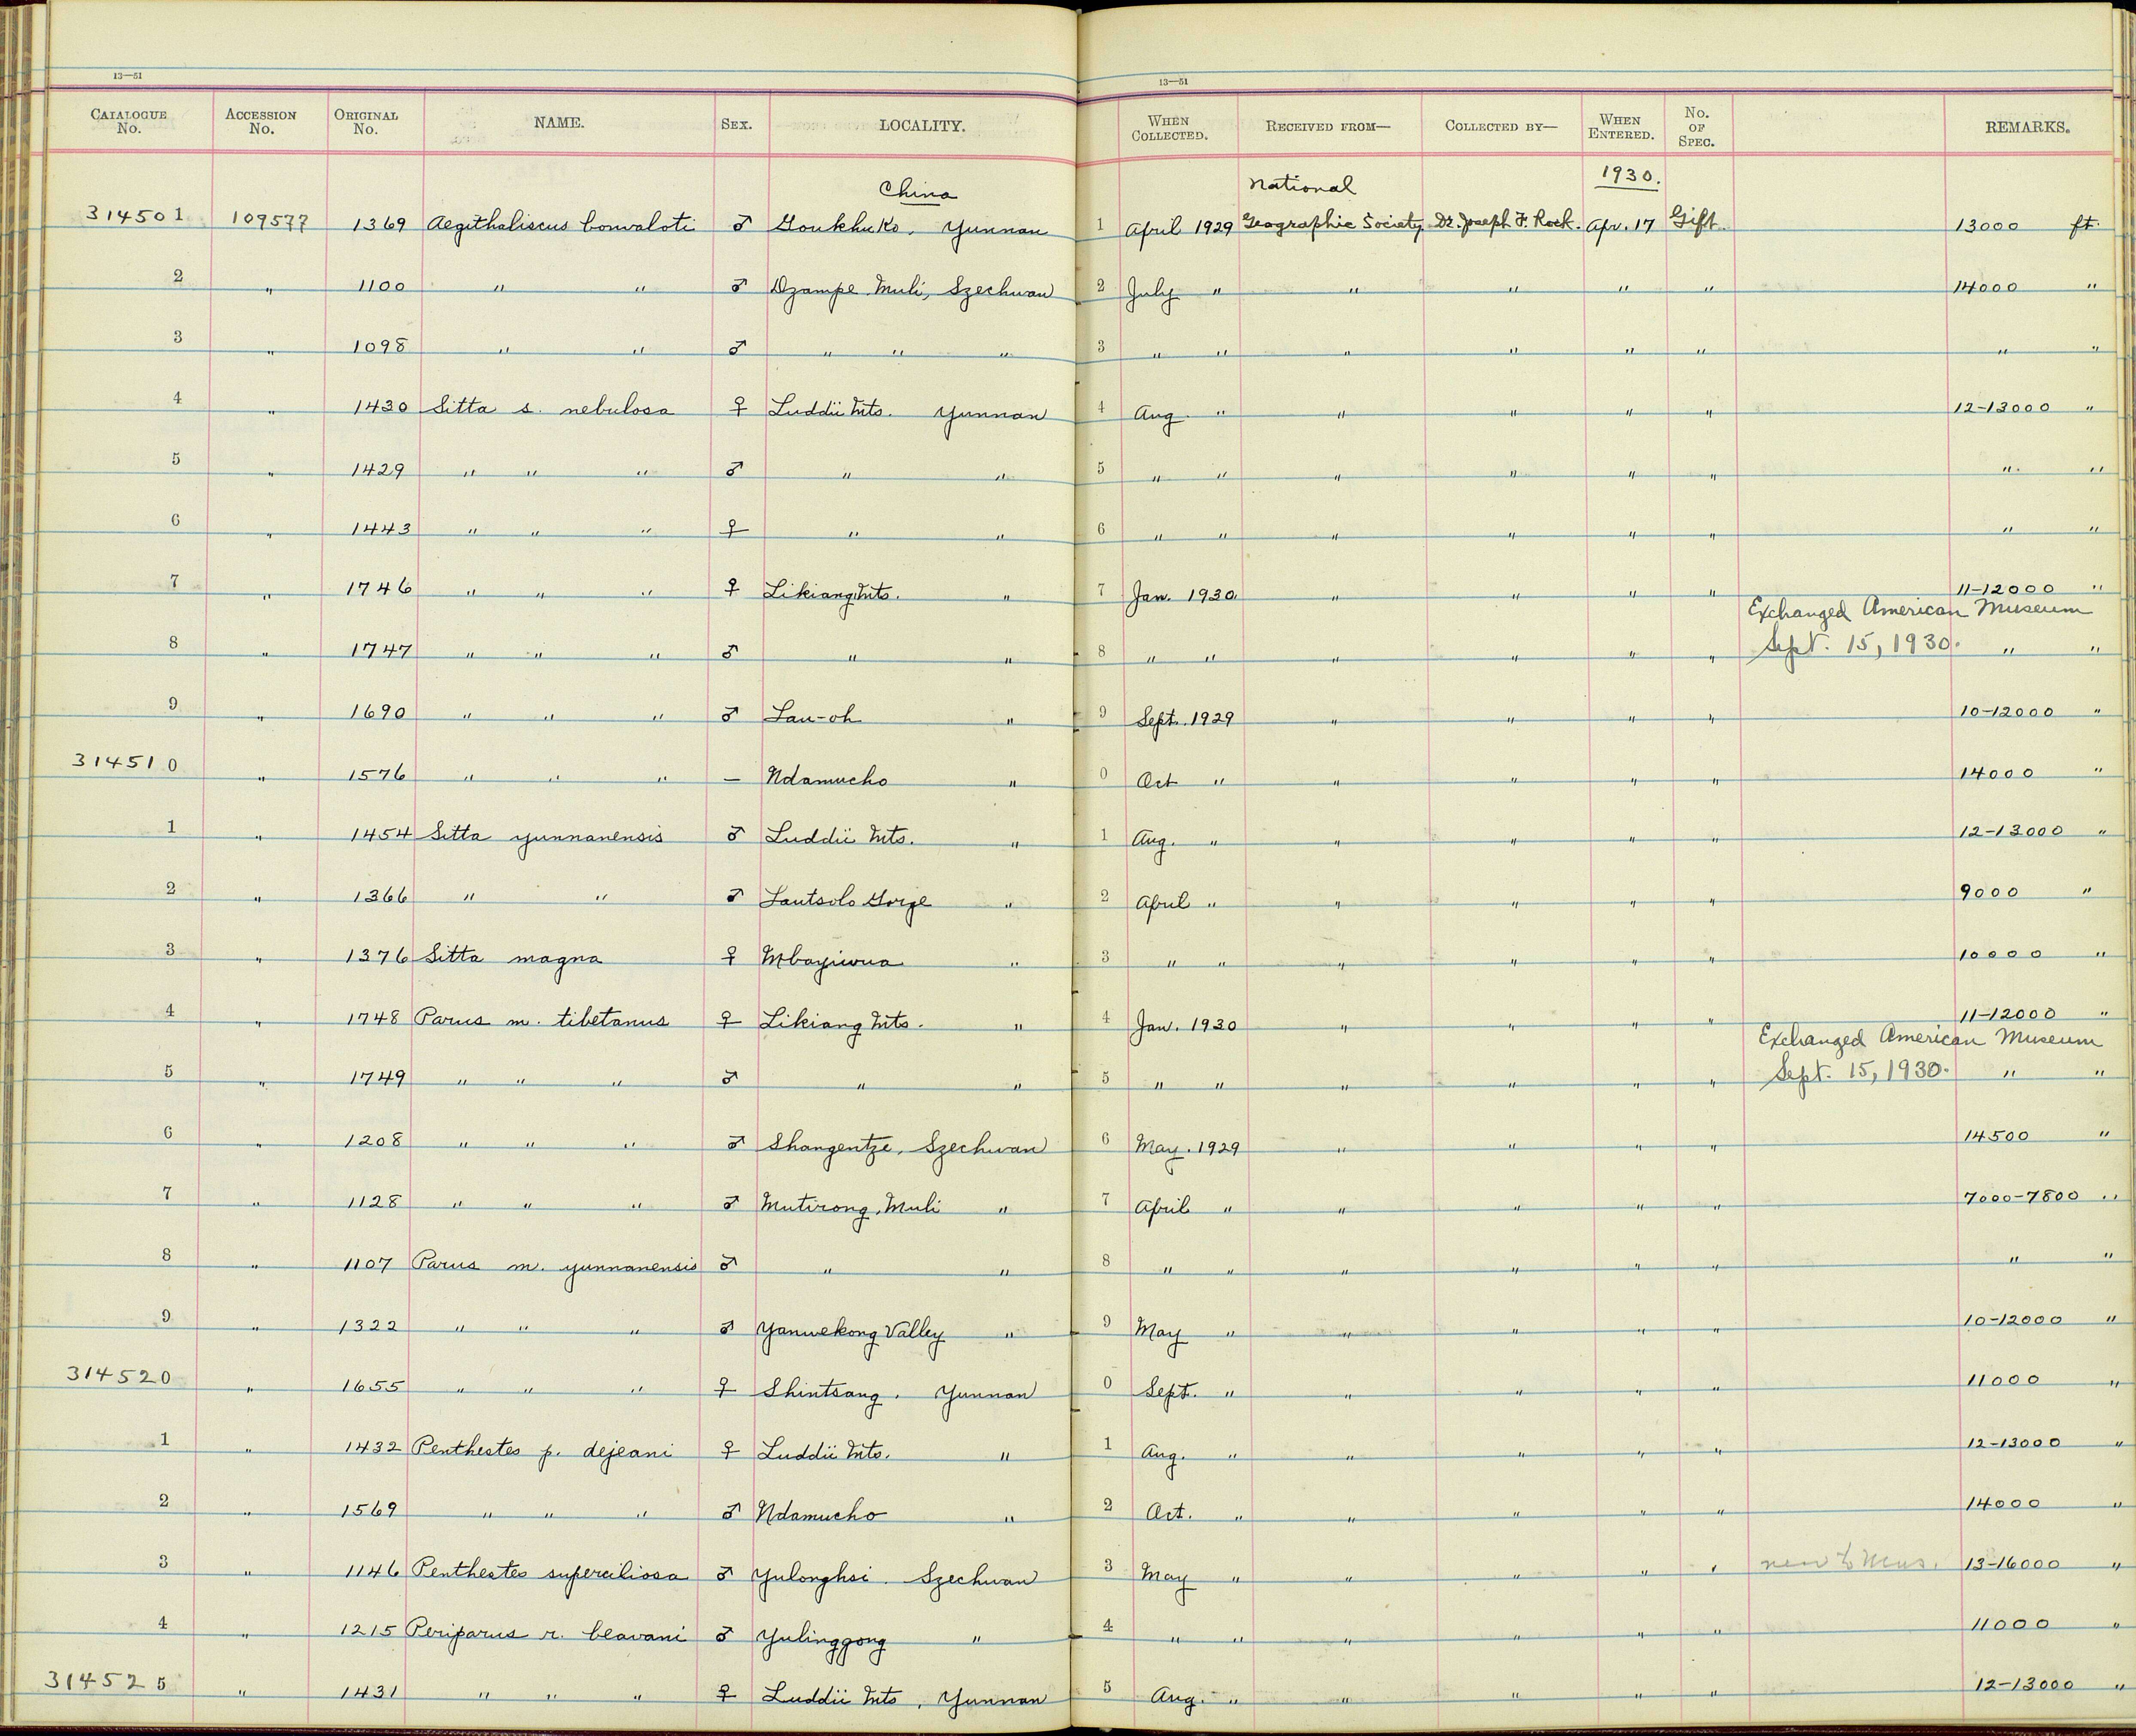 13—51
13—51
CATALOGUE No. ACCESSION No. ORIGINAL No. NAME. SEX. LOCALITY. WHEN COLLECTED. RECEIVED FROM— COLLECTED BY— WHEN ENTERED. No. OF SPEC. REMARKS.
China National 1930.
314501 109577 1369 Aegithaliscus bonvaloti ♂ Goukhuko, Yunnan 1 April 1929 Geographic Society Dr. Joseph F. Rock. Apr. 17 Gift. 13000 ft.
2 " 1100 " " ♂ Dzampe Muli, Szechwan 2 July " " " " " 14000 "
3 " 1098 " " ♂ " " " 3 " " " " " " " "
4 " 1430 Sitta s. nebulosa ♀ Luddii Mts. Yunnan 4 Aug " " " " " 12-13000 "
5 " 1429 " " " ♂ " " 5 " " " " " " " "
6 " 1443 " " " ♀ " " 6 " " " " " " " "
7 " 1746 " " " ♀ Likiang Mts. " 7 Jan. 1930 " " " " 11-12000 "
Exchanged American Museum
8 " 1747 " " " ♂ " " 8 " " " " " " Sept. 15, 1930. " "
9 " 1690 " " " ♂ Lau-oh " 9 Sept. 1929 " " " " 10-12000 "
314510 " 1576 " " " — Ndamucho " 0 Oct " " " " " 14000 "
1 " 1454 Sitta yunnanensis ♂ Luddii Mts. " 1 Aug. " " " " " 12-13000 "
2 " 1366 " " ♂ Lautsolo Gorge " 2 April " " " " " 9000 "
3 " 1376 Sitta magna ♀ Mbayiwua " 3 " " " " " " 10000 "
4 " 1748 Parus m. tibetanus ♀ Likiang Mts. " 4 Jan. 1930 " " " " 11-12000 "
Exchanged American Museum
5 " 1749 " " " ♂ " " 5 " " " " " " Sept. 15, 1930. " "
6 " 1208 " " " ♂ Shangentze, Szechwan 6 May. 1929 " " " " 14500 "
7 " 1128 " " " ♂ Mutirong, Muli " 7 April " " " " " 7000-7800 "
8 " 1107 Parus m. yunnanensis ♂ " " 8 " " " " " " " "
9 " 1322 " " " ♂ Yanwekong Valley " 9 May " " " " " 10-12000 "
314520 " 1655 " " " ♀ Shintsang. Yunnan 0 Sept. " " " " " 11000 "
1 " 1432 Penthestes p. dejeani ♀ Luddii Mts. " 1 Aug. " " " " " 12-13000 "
2 " 1569 " " " ♂ Ndamucho " 2 Oct. " " " " " 14000 "
3 " 1146 Penthestes superciliosa ♂ Yulonghsi. Szechwan 3 May " " " " " new to Mus. 13-16000 "
4 " 1215 Periparus r. beavani ♂ Yulinggong " 4 " " " " " " 11000 "
314525 " 1431 " " " ♀ Luddii Mts, Yunnan 5 Aug. " " " " " 12-13000 "